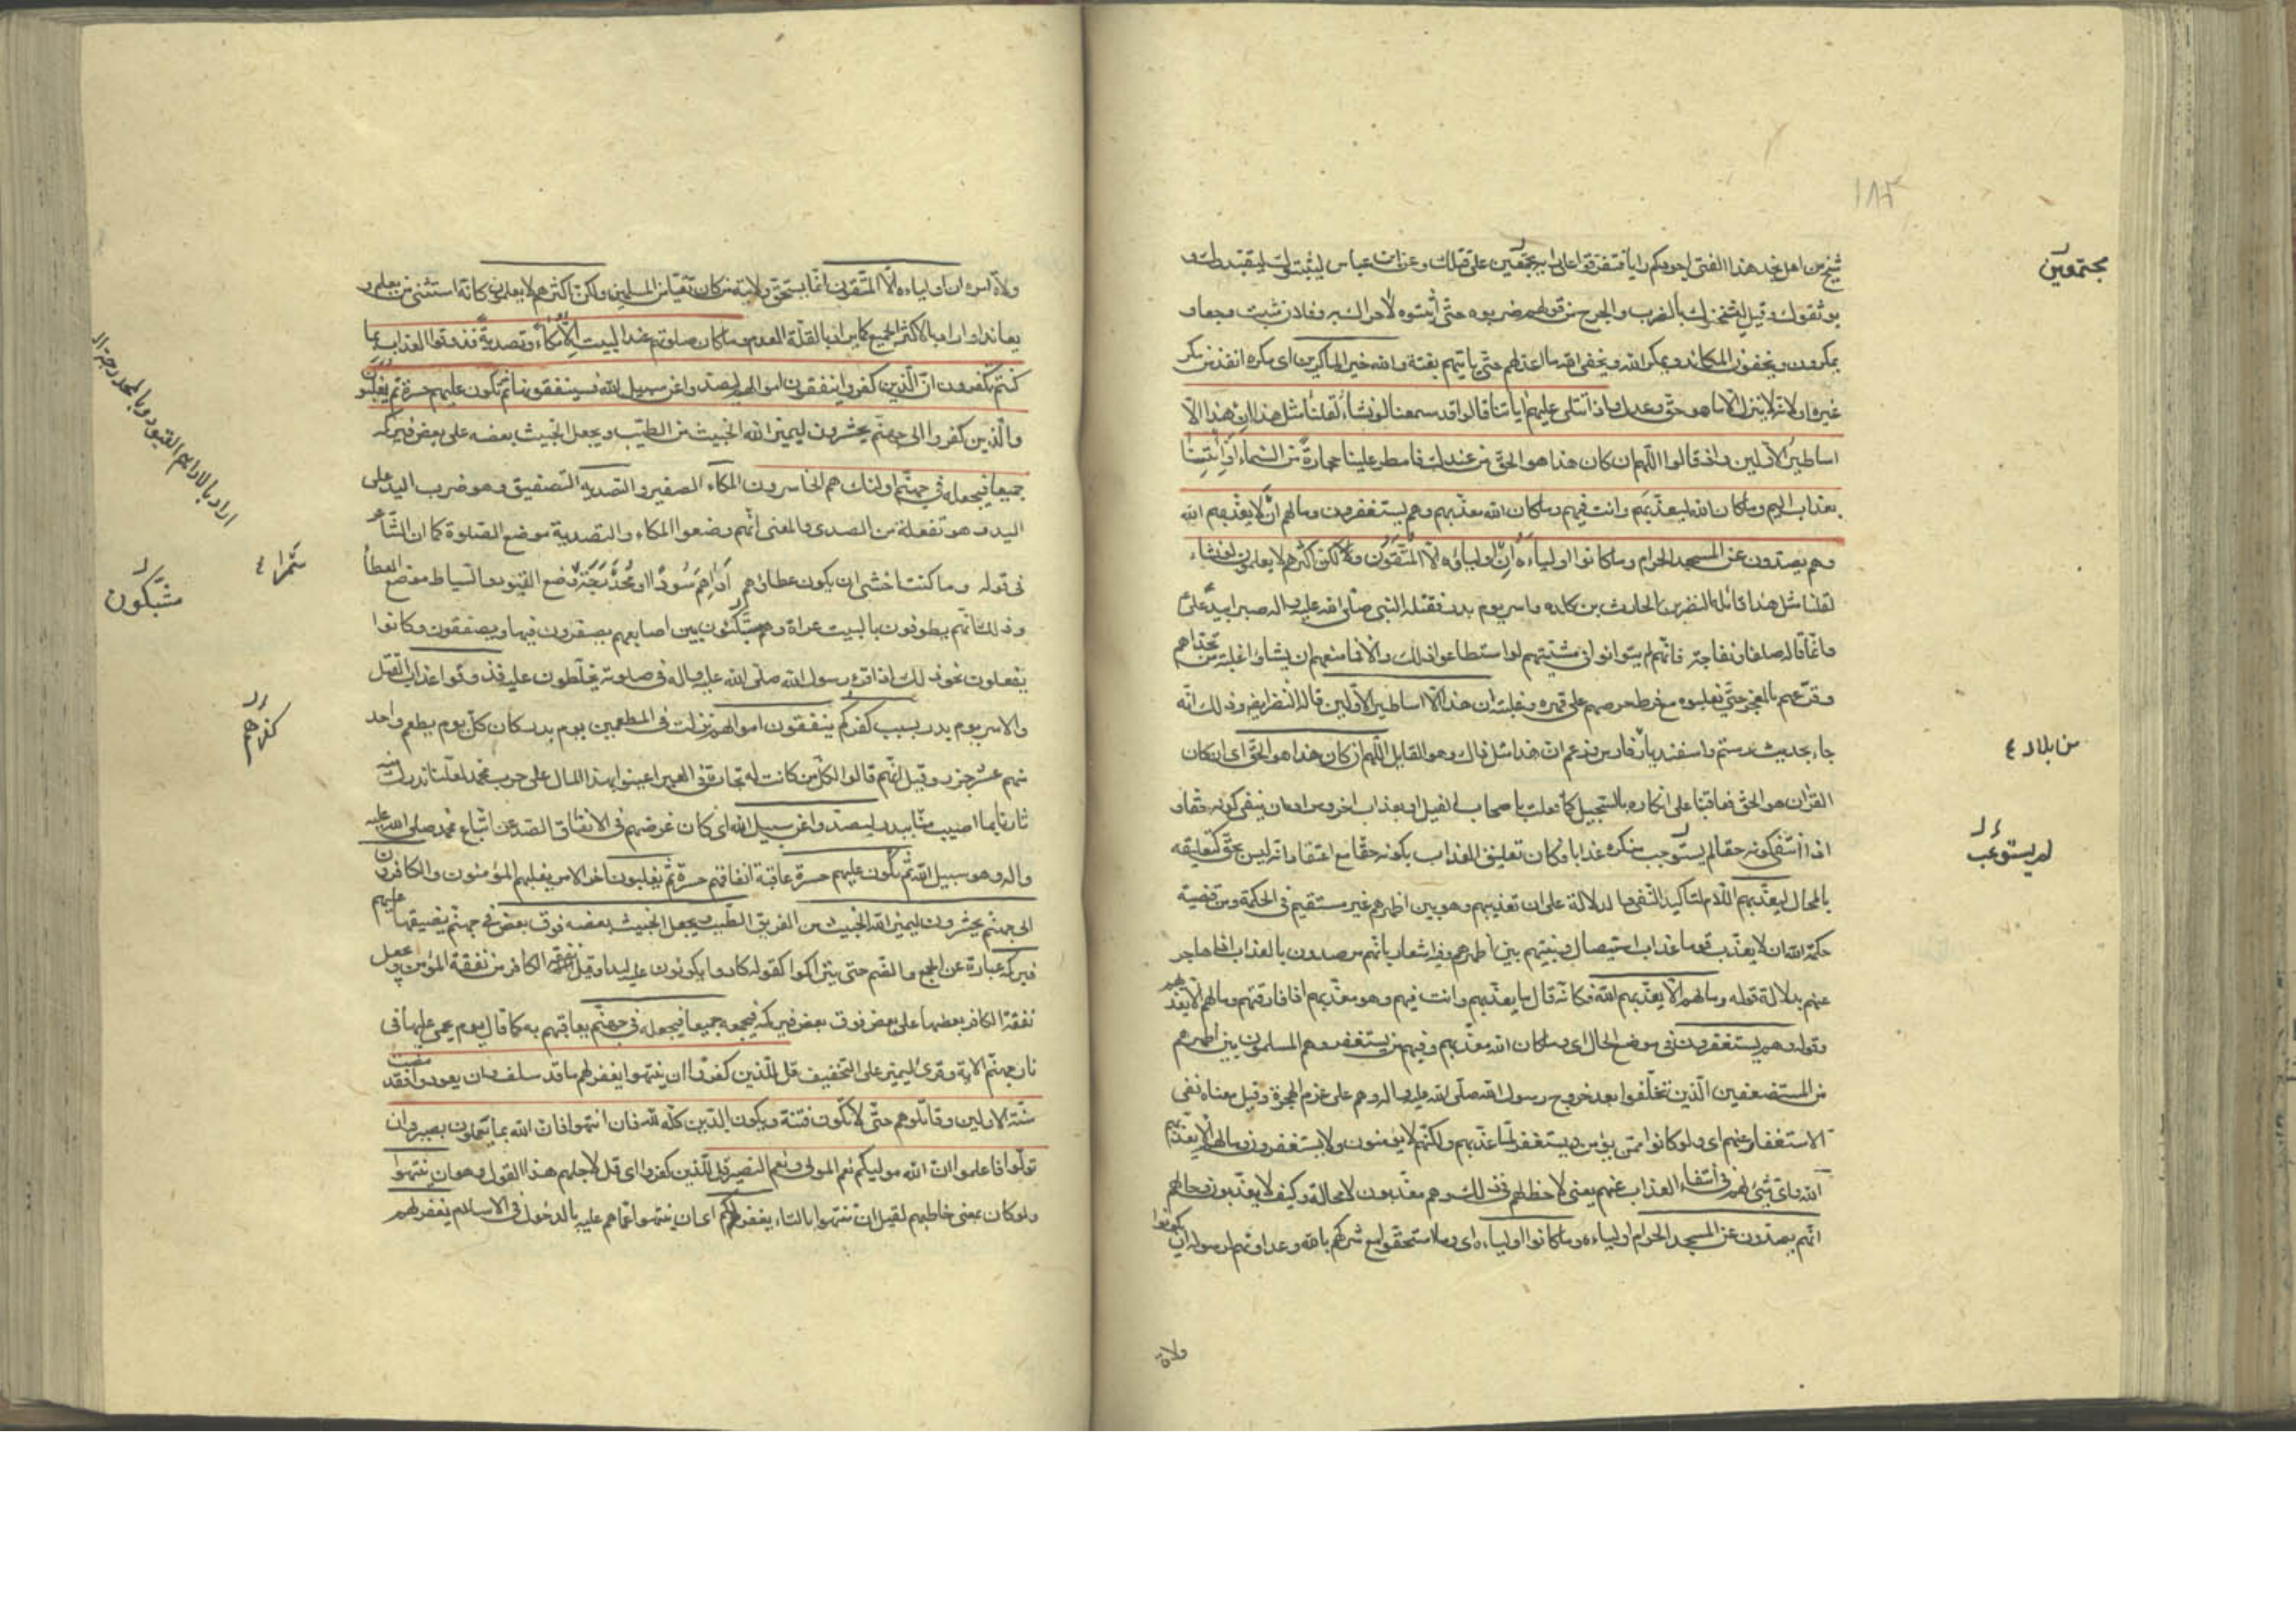 ١٨٢
شيخ من اهل نجد هذا الفتى اجودكم رايا فتفرقوا على راى ابى جهل مجتمعين على قتلك وعن ابن عباس ليثبتوك ليقيدوك و
يوثقوك وقيل ليثخنوك بالضرب والجرح من قولهم ضربوه حتى اثبتوه لا حراك به وفلان مثبت وجعا و
يمكرون ويخفون المكائد ويمكر الله ويخفى الله ما اعد لهم حتى ياتيهم بغتة والله خير الماكرين اى مكره انفذ من مكر
غيره او لانه لا ينزل الا ما هو حق وعدل واذا تتلى عليهم اياتنا قالوا قد سمعنا لو نشاء لقلنا مثل هذا ان هذا الا
اساطير الاولين واذ قالوا اللهم ان كان هذا هو الحق من عندك فامطر علينا حجارة من السماء او ائتنا
بعذاب اليم وما كان الله ليعذبهم وانت فيهم وما كان الله معذبهم وهم يستغفرون وما لهم ان لا يعذبهم الله
وهم يصدون عن المسجد الحرام وما كانوا اولياءه ان اولياؤه الا المتقون ولكن اكثرهم لا يعلمون لو نشاء
لقلنا مثل هذا قائله النضر بن الحارث بن كلده واسر يوم بدر فقتله النبى صلى الله عليه واله صبرا بيد على
وانما قاله صلفا ونفاجة فانهم لم يتوانوا فى مشيتهم لو استطاعوا ذلك والا فما منعهم ان يشاؤا غلبة من تحداهم
وقرعهم بالعجز حتى يغلبوه مع فرط حرصهم على قهره وغلبته ان هذا الا اساطير الاولين قاله النضر ايضا وذلك انه
جاء بحديث رستم واسفنديار من فارس وزعم ان هذا مثل ذاك وهو القايل اللهم ان كان هذا هو الحق اى ان كان
القران هو الحق فعاقبنا على انكاره بالسجيل كما فعلت باصحاب الفيل او بعذاب اخر ومراده ان ينفى كونه حقا و
اذا انتفى كونه حقا لم يستوجب منكره عذابا وكان تعليق العذاب بكونه حقا مع اعتقاد انه ليس بحق كتعليقه
بالمحال ليعذبهم اللام لتأكيد النفى والدلالة على ان تعذيبهم وهو بين اظهرهم غير مستقيم فى الحكمة ومن قضية
حكمة الله ان لا يعذب قوما عذاب استيصال ونبيهم بين اظهرهم وفيه اشعار بانهم مرصدون بالعذاب اذا هاجر
عنهم بدلالة قوله وما لهم الا يعذبهم الله فكانه قال ما يعذبهم وانت فيهم وهو معذبهم اذا فارقتهم وما لهم الا يعذبهم
وقوله وهم يستغفرون فى موضع الحال اى وما كان الله معذبهم وفيهم من يستغفر وهم المسلمون بين اظهرهم
من المستضعفين الذين تخلفوا بعد خروج رسول الله صلى الله عليه واله وهم على عزم الهجرة وقيل معناه نفى
الاستغفار عنهم اى ولو كانوا ممن يؤمن ويستغفر لما عذبهم ولكنهم لا يؤمنون ولا يستغفرون وما لهم الا يعذبهم
الله واى شىء لهم فى انتفاء العذاب عنهم يعنى لا حظ لهم فى ذلك وهم معذبون لا محالة وكيف لا يعذبون وحالهم
انهم يصدون عن المسجد الحرام اولياءه وما كانوا اولياءه اى وما استحقوا مع شركهم بالله وعداوتهم لرسوله ان يكونوا
ولاة
مجتمعين
من بلاد
لم يستوجب
ولاة امره ان اولياءه الا المتقون انما يستحق ولايته من كان تقيا من المسلمين ولكن اكثرهم لا يعلمون كانه استثنى من يعلم و
يعاند او اراد بالاكثر الجميع كما يراد بالقلة العدم وما كان صلوتهم عند البيت الا مكاء وتصدية فذوقوا العذاب بما
كنتم تكفرون ان الذين كفروا ينفقون اموالهم ليصدوا عن سبيل الله فسينفقونها ثم تكون عليهم حسرة ثم يغلبون
والذين كفروا الى جهنم يحشرون ليميز الله الخبيث من الطيب ويجعل الخبيث بعضه على بعض فيركمه
جميعا فيجعله فى جهنم اولئك هم الخاسرون المكاء الصفير والتصدية التصفيق وهو ضرب اليد على
اليد وهو تفعلة من الصدى والمعنى انهم وضعوا المكاء والتصدية موضع الصلوة كما ان الشاعر
فى قوله وما كنت اخشى ان يكون عطاؤهم اداهم سودا او محدرجة وضع القيود والسياط موضع العطاء
وذلك انهم يطوفون بالبيت عراة وهم مشبكون بين اصابعهم يصفرون فيها ويصفقون وكانوا
يفعلون نحو ذلك اذا قرء رسول الله صلى الله عليه واله فى صلوته يخلطون عليه فذوقوا عذاب القتل
والاسر يوم بدر بسبب كفركم ينفقون اموالهم نزلت فى المطعمين يوم بدر كان كل يوم يطعم واحد
منهم عشر جزر وقيل انهم قالوا لكل من كانت له تجارة فى العير اعينوا بهذا المال على حرب محمد لعلنا ندرك منه
ثارنا بما اصيب منا ببدر ليصدوا عن سبيل الله اى كان غرضهم فى الانفاق الصد عن اتباع محمد صلى الله عليه
واله وهو سبيل الله ثم تكون عليهم حسرة عاقبة انفاقهم حسرة ثم يغلبون اخر الامر يغلبهم المؤمنون والكافرون
الى جهنم يحشرون ليميز الله الخبيث من الفريق الطيب ويجعل الخبيث بعضه فوق بعض فى جهنم يضيقها عليهم
فيركمه عبارة عن الجمع والضم حتى يتراكموا كقوله كادوا يكونون عليه لبدا وقيل نفقة الكافر من نفقة المؤمن ويجعل
نفقة الكافر بعضها على بعض فوق بعض فيركمه فيجمعه جميعا فيجعله فى جهنم يعاقبهم به كما قال يوم يحمى عليها فى
نار جهنم الاية وقرئ ليميز على التخفيف قل للذين كفروا ان ينتهوا يغفر لهم ما قد سلف وان يعودوا فقد مضت
سنة الاولين وقاتلوهم حتى لا تكون فتنة ويكون الدين كله لله فان انتهوا فان الله بما يعملون بصير وان
تولوا فاعلموا ان الله موليكم نعم المولى ونعم النصير قل للذين كفروا اى قل لاجلهم هذا القول وهو ان ينتهوا
ولو كان بمعنى خاطبهم لقيل ان تنتهوا بالتاء يغفر لكم اى ان ينتهوا عما هم عليه بالدخول فى الاسلام يغفر لهم
اراد بالاداهم القيود وبالمحدرجة
شعرا
مشبكون
كفرهم